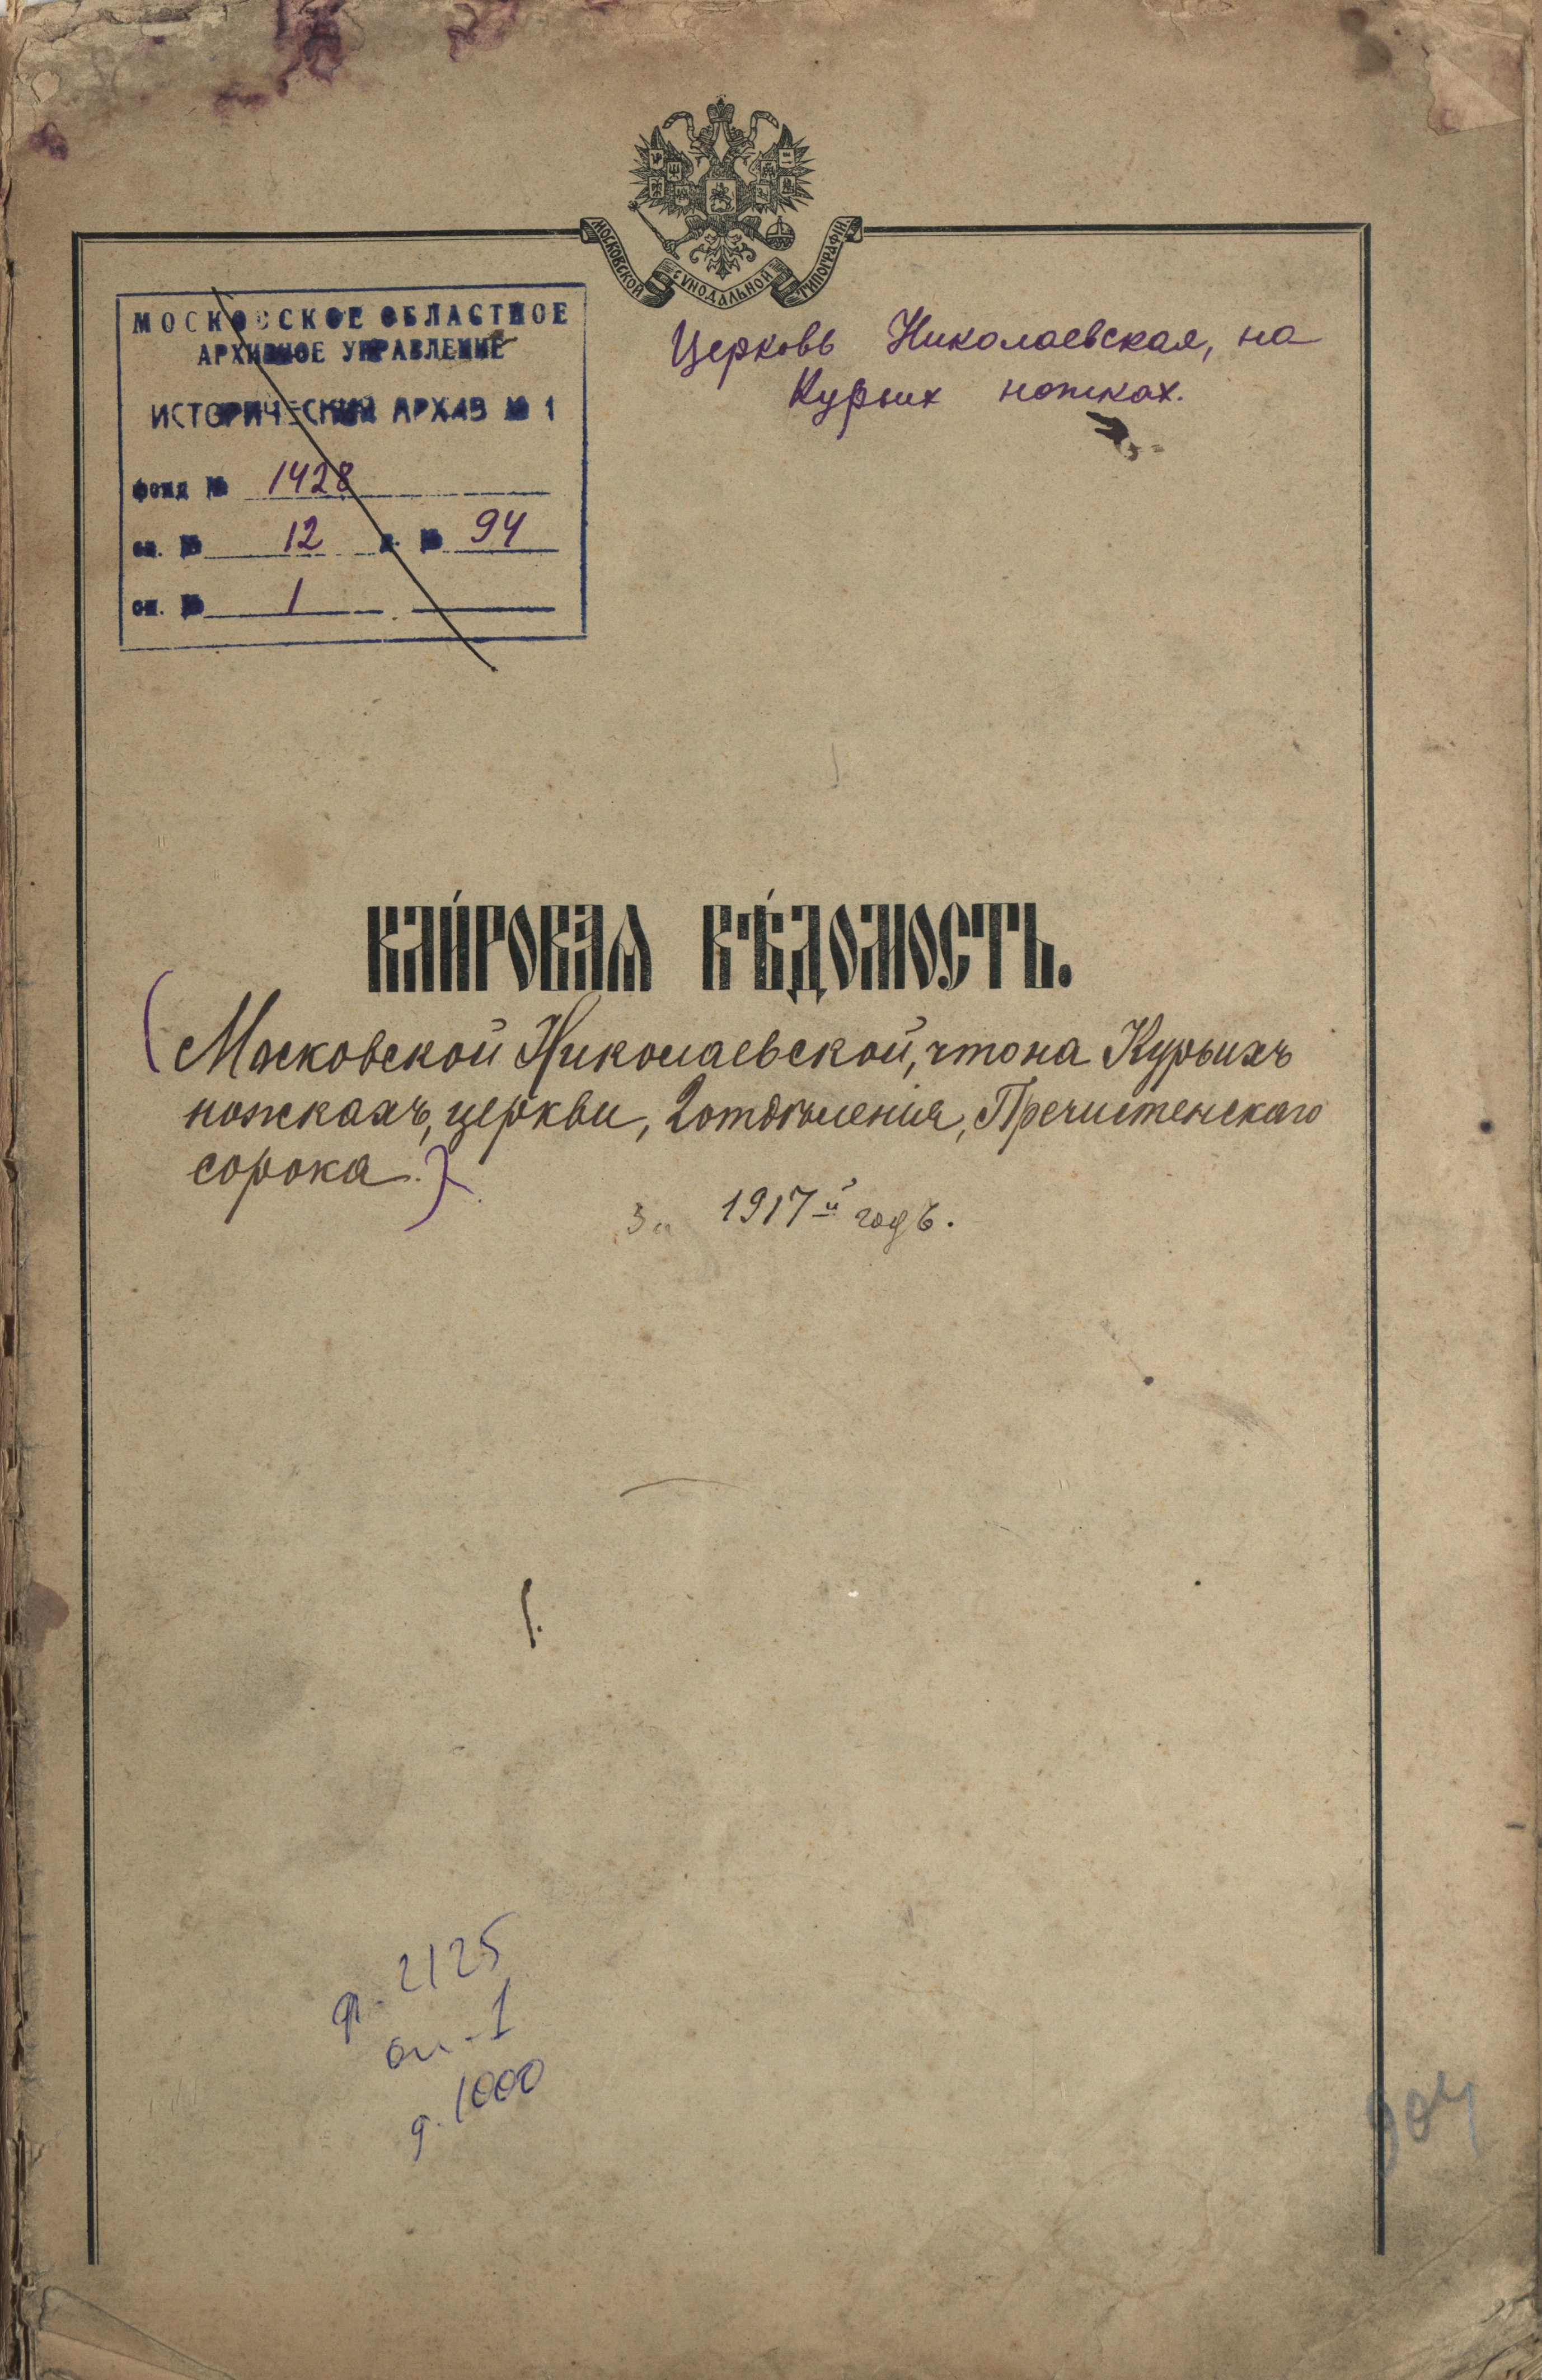 МОСКОВСКОЙ СѴНОДАЛЬНОЙ ТИПОГРАФІИ.
МОСКОВСКОЕ ОБЛАСТНОЕ
АРХИВНОЕ УПРАВЛЕНИЕ
ИСТОРИЧЕСКИЙ АРХИВ № 1
фонд № 1428
оп. № 12 д. № 94
св. № 1
Церковь Николаевская, на
Курьих ножках.
КЛИ́РОВАѦ ВѢ́ДОМОСТЬ.
(Московской Николаевской, что на Курьихъ
ножкахъ, церкви, 2 отдѣленія, Пречистенскаго
сорока.)
За 1917й годъ.
ф. 2125
оп. 1
д. 1000
904